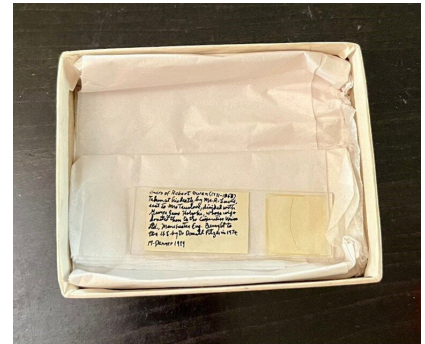 Hairs of Robert Owen (1771-1858)
Taken at his death by Mr. R.
sent to Mrs Townsend, divided with
George Jacob Holyoake, whose wife
donated them to the Cooperative Union
Ltd., Manchester Eng. Brought to
the U.S. by Dr Donald Pitzer in 1974
M. 1979